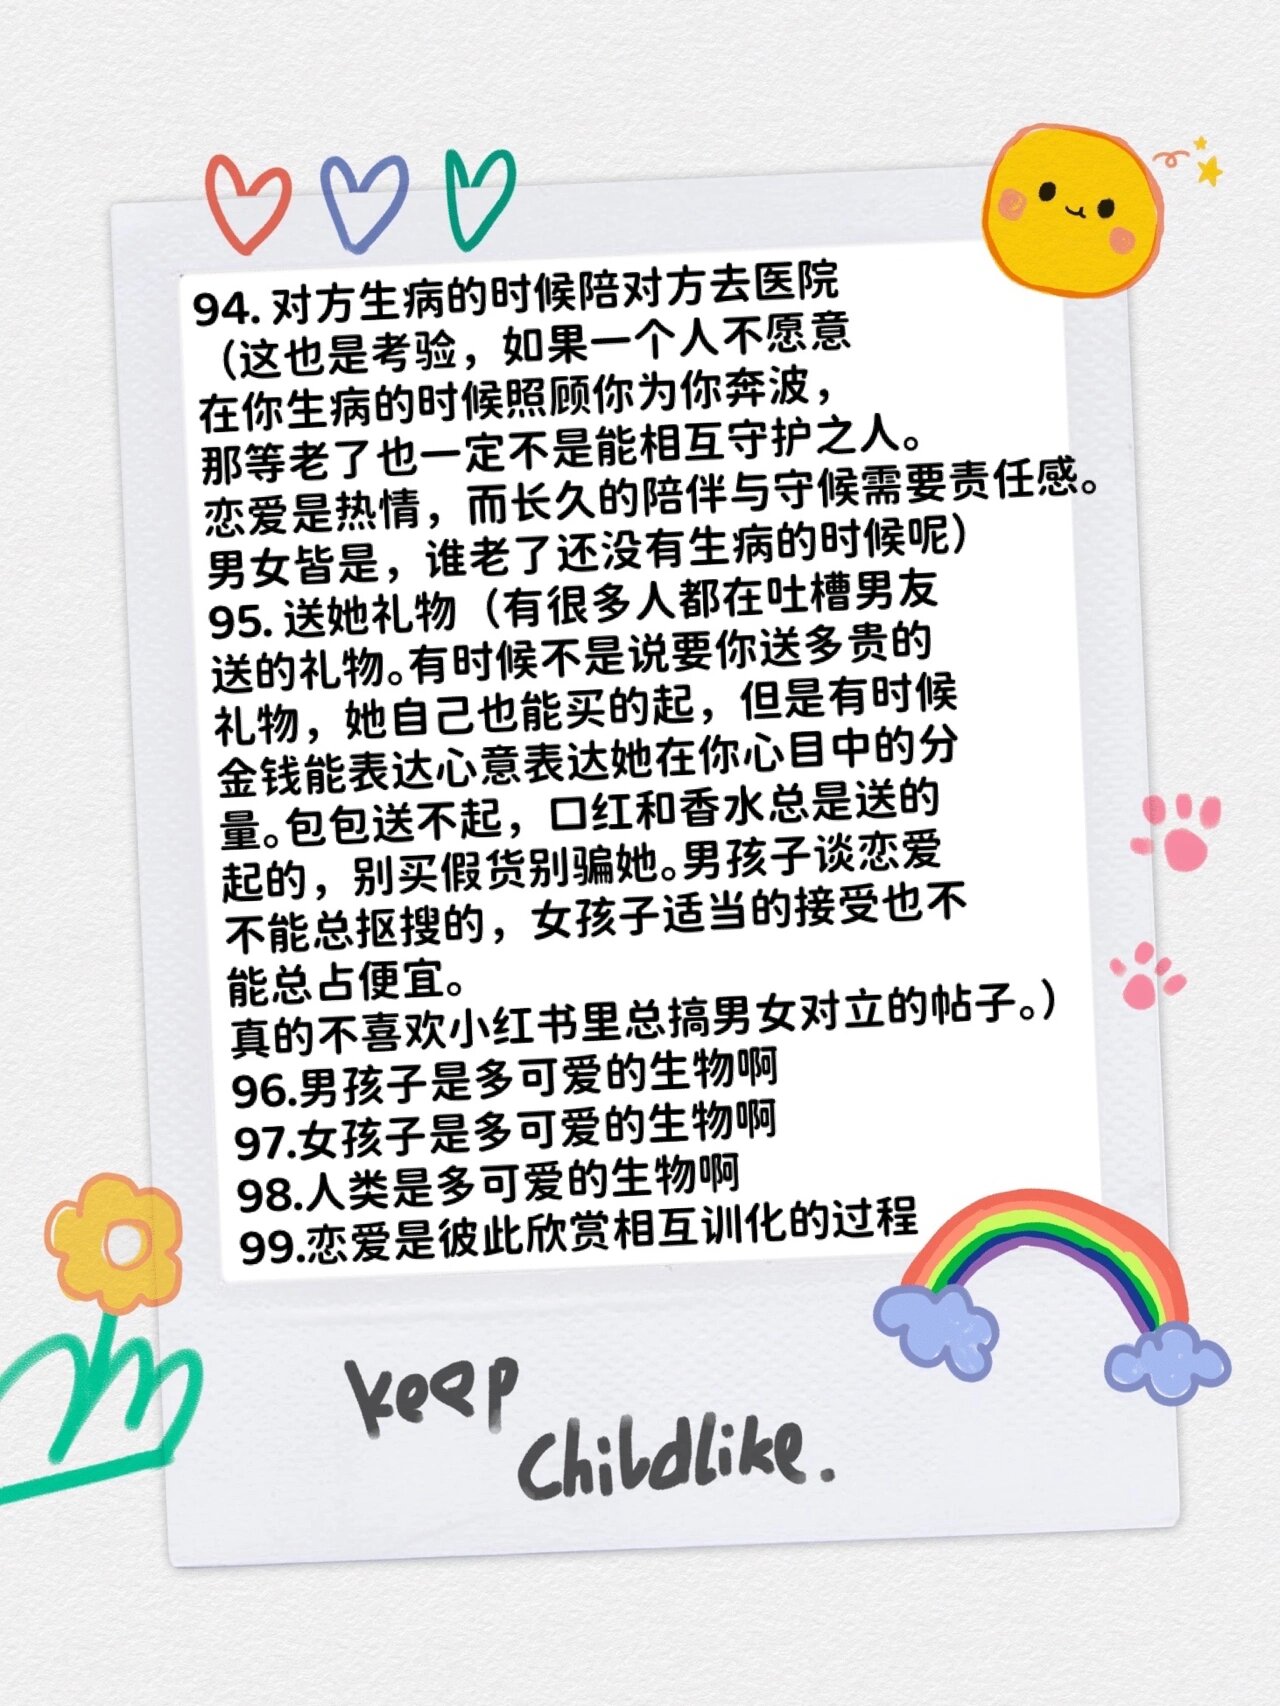 94. 对方生病的时候陪对方去医院
（这也是考验，如果一个人不愿意
在你生病的时候照顾你为你奔波，
那等老了也一定不是能相互守护之人。
恋爱是热情，而长久的陪伴与守候需要责任感。
男女皆是，谁老了还没有生病的时候呢）
95. 送她礼物（有很多人都在吐槽男友
送的礼物。有时候不是说要你送多贵的
礼物，她自己也能买的起，但是有时候
金钱能表达心意表达她在你心目中的分
量。包包送不起，口红和香水总是送的
起的，别买假货别骗她。男孩子谈恋爱
不能总抠搜的，女孩子适当的接受也不
能总占便宜。
真的不喜欢小红书里总搞男女对立的帖子。）
96.男孩子是多可爱的生物啊
97.女孩子是多可爱的生物啊
98.人类是多可爱的生物啊
99.恋爱是彼此欣赏相互训化的过程
keep
childlike.